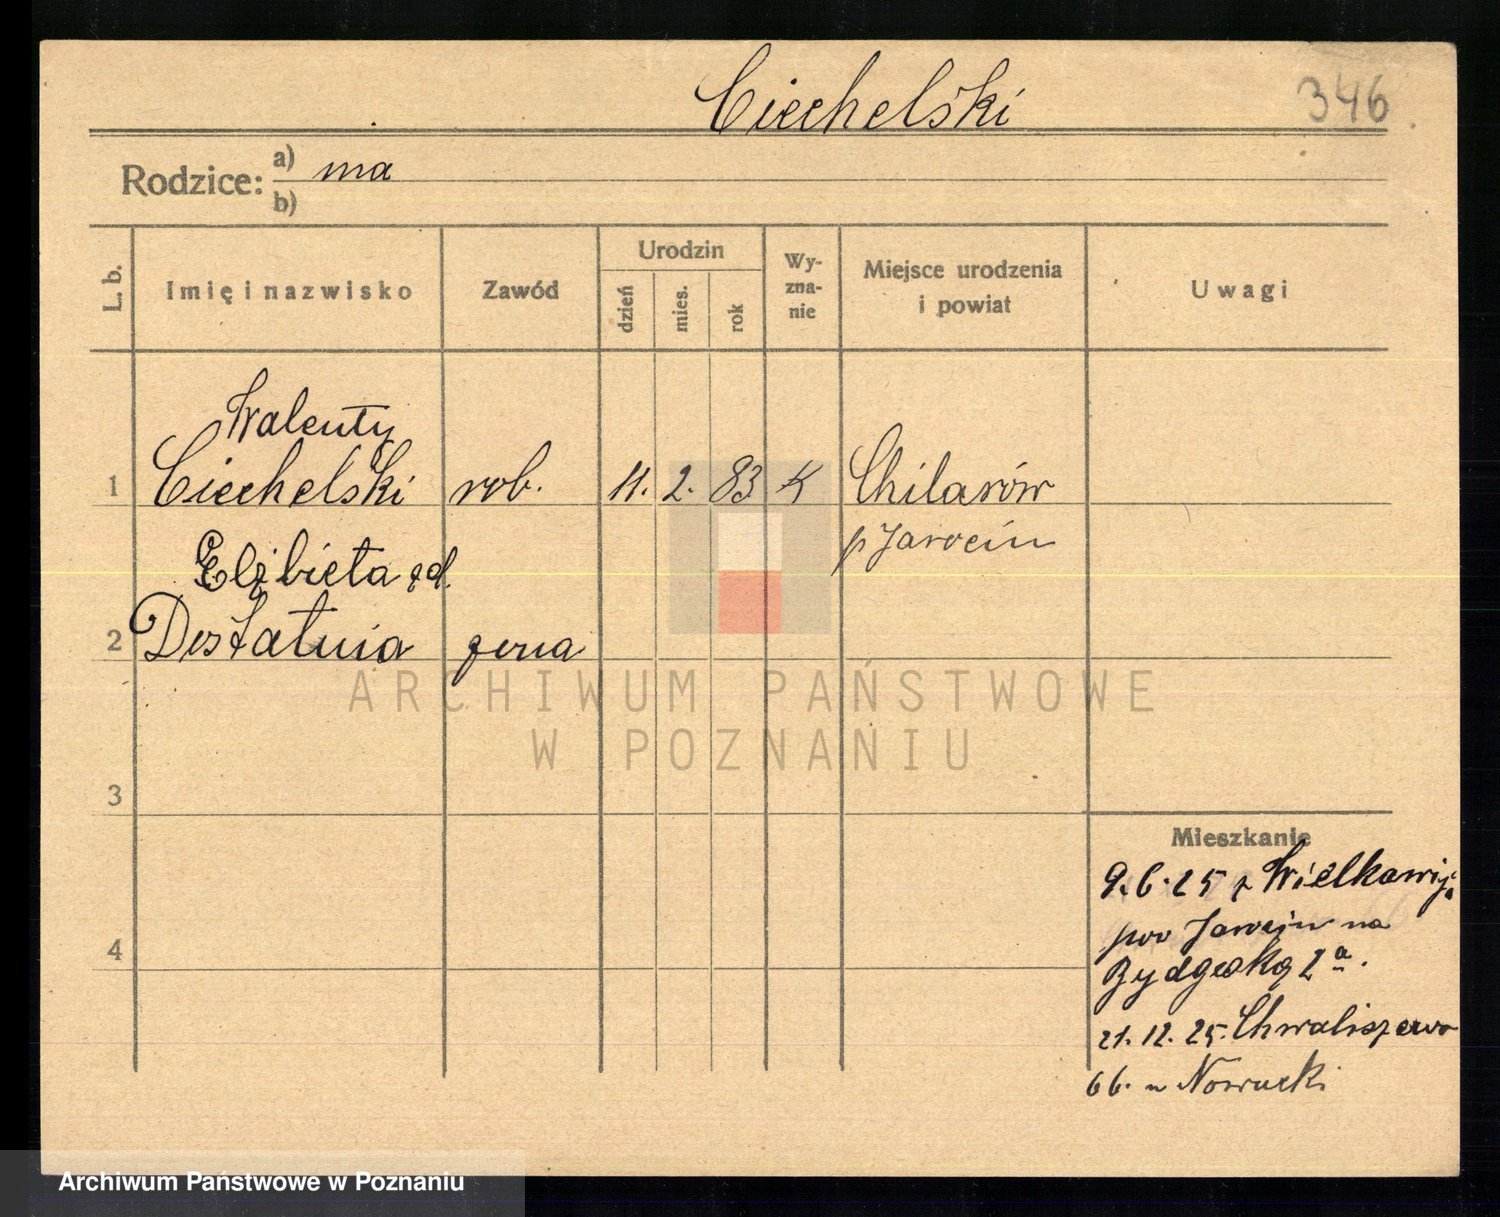 Ciechelski
346
Rodzice: a) ma
b)
L. b.
Imię i nazwisko
Zawód
Urodzin
dzień
mies.
rok
Wy-
zna-
nie
Miejsce urodzenia
i powiat
Uwagi
Walenty
1 Ciechelski rob. 11. 2. 83 K Chilarów
p Jarocin
Elżbieta zd.
2 Dostatnia żona
3
4
Mieszkanie
9.6.25 z Wielkawija
pow Jarocin na
Bydgoską 2a.
21. 12. 25. Chwaliszewo
66. u Nowacki
ARCHIWUM PAŃSTWOWE
W POZNANIU
Archiwum Państwowe w Poznaniu